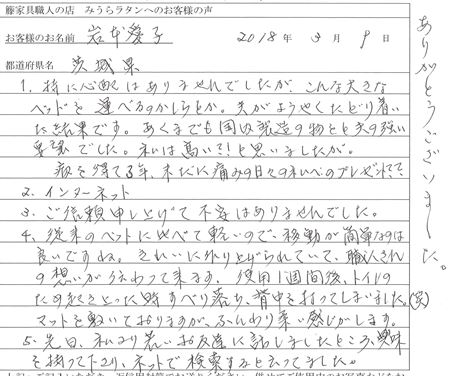 籐家具職人の店 みうらラタンへのお客様の声
お客様のお名前 岩本愛子 2018年3月9日
都道府県名 茨城県
1. 特に心配はありませんでしたが、こんな大きな
ベッドを運べるのかしらとか。夫がようやくたどり着い
た結果です。あくまでも国内製造の物をと夫の強い
要望でした。私は高い〜!と思いましたが。
病を得て3年、未だに痛みの日々の私へのプレゼントでした
2. インターネット
3. ご信頼申し上げて不安はありませんでした。
4. 従来のベッドに比べて軽いので、移動が簡単なのは
良いですね。きれいに作り上げられていて、職人さん
の想いが伝わって来ます。使用1週間後、トイレの
ため起きようとした時すべり落ち、背中を打ってしまいました。(笑)
マットを敷いておりますが、ふんわり柔い感じがします。
5. 先日、私より若いお友達に話しましたところ、興味
を持って下さり、ネットで検索すると云ってました。
ありがとうございました。